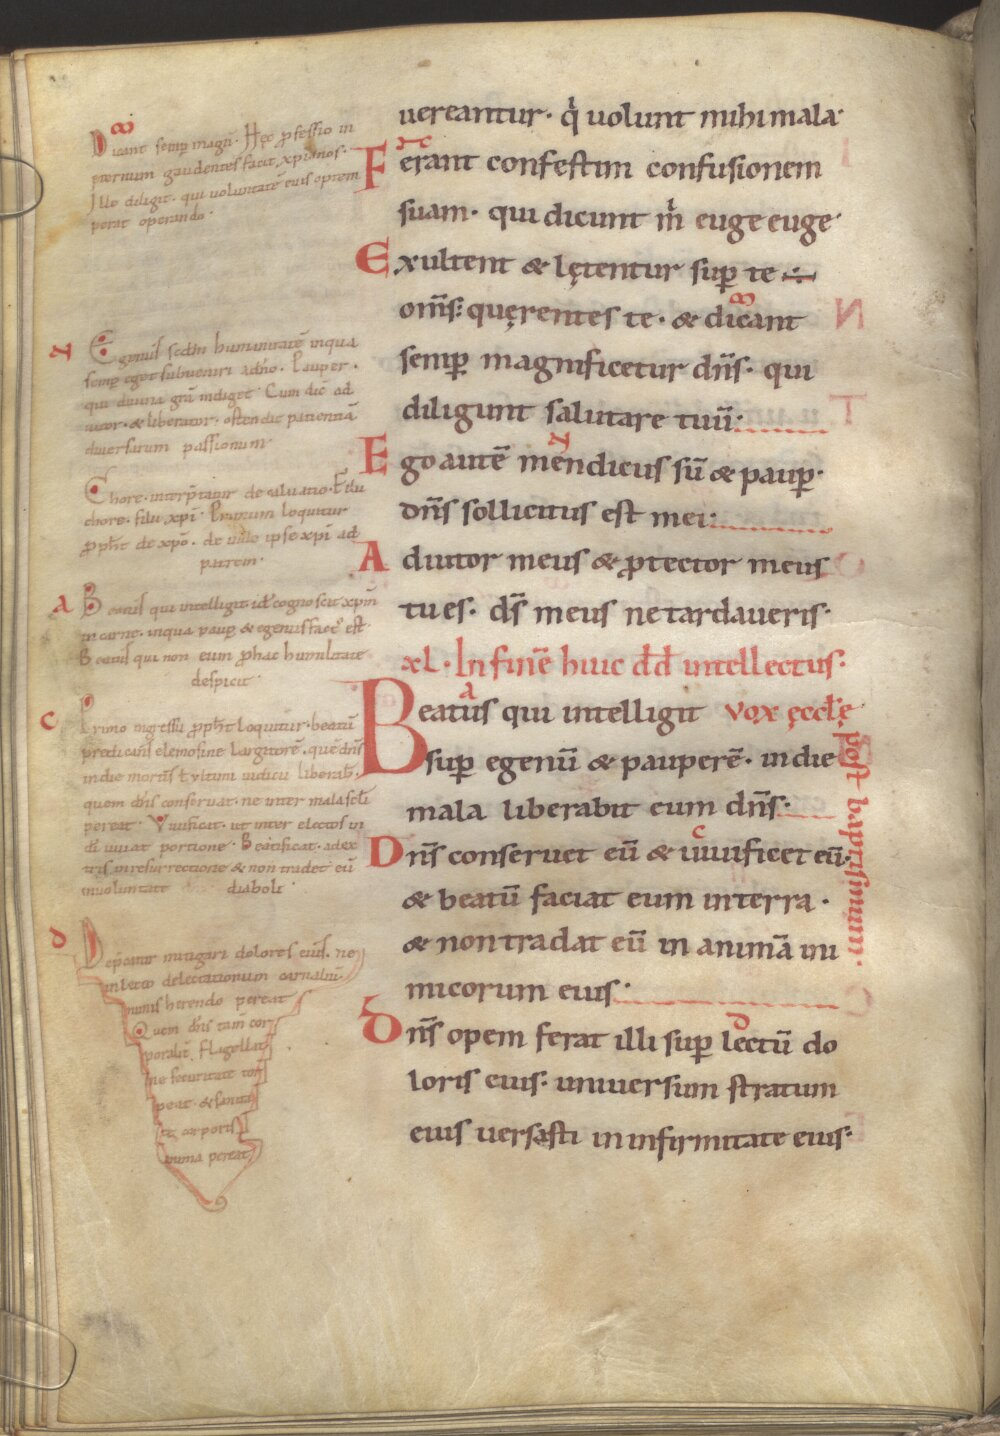 uereantur· q̇ uolunt mihi mala·
Ferant confestim confusionem
suam· qui dicunt m̄ euge euge·
Exultent & lętentur sup̱ te ÷
om̄s: quęrentes te· & dicant
semp̱ magnificetur dn̄s· qui
diligunt salutare tuū·
Ego autē mendicus sū & paup̱·
dn̄s sollicitus est mei:
Adiutor meus & ꝓtector meus
tu es· ds̄ meus ne tardaueris·
xL· In finē huic dd̄ intellectus·
Beatus qui intelligit vox ęccłę
sup̱ egenū & pauperē· in die
mala liberabit eum dn̄s·
Dn̄s conseruet eū & uiuificet eū·
& beatū faciat eum in terra·
& non tradat eū in animā ini
micorum eius·
Dn̄s opem ferat illi sup̱ lectū do
loris eius· uniuersum stratum
eius uersasti in infirmitate eius·
post baptismum·
Dicant semp̱ magn̄· Hęc ꝓfessio in
ęternum gaudentes facit xp̄ianos·
Ille diligit· qui uoluntatē eius
operando·
Egenus scd̄m humanitatē in qua
semp̱ eget subueniri a dn̄o· Pauper·
qui diuina gr̄a indiget· Cum dic̄ ad
iutor· & liberator· ostendit patientiā
diuersarum passionum·
Chore· interp̄tatur caluatio· Filii
chore· filii xp̄i· Primum loquitur
ꝓph̄t de xp̄o· de ipse xp̄i ad
patrem·
Beatus qui intelligit id̄ cognoscit xp̄m
in carne· in qua paup̱ & egenus fact̄ est·
Beatus qui non eum ꝓ hac humilitate
despicit·
Primo ingressu ꝓph̄t loquitur· beatū
predicans elemosine largitorē· quē dn̄s
in die mortis ł ultimi iudicii liberab̄·
quem dn̄s conseruat· ne inter mala scł̄i
pereat· Viuificat· ut inter electos in
dī uiuat portione· Beatificat· adex
tris in resurrectione & non tradet eū
in uoluntate diaboli·
Dep̄catur mitigari dolores eius· ne
in lecto delectationum carnaliū
nimis herendo pereat
Quem dn̄s tam cor
poralit̄ flagellat
ne securitate tor
peat· & sanita
te corporis
anima pereat